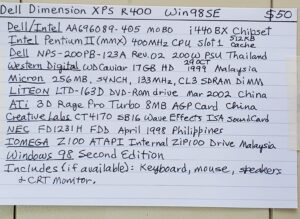 Dell Dimension XPS R400 Win98SE $50
Dell/Intel AA696089-405 MOBO i440BX Chipset
Intel Pentium II (MMX) 400MHz CPU Slot 1 512KB Cache
Dell NPS-200PB-123A Rev.02 200W PSU Thailand
Western Digital WD Caviar 17GB HD 29 OCT 1999 Malaysia
Micron 256MB, 54NCH, 133MHz, CL3 SDRAM DIMM
LITEON LTD-163D DVD-ROM drive Mar 2002 China
ATi 3D Rage Pro Turbo 8MB AGP Card China
Creative Labs CT4170 SB16 Wave Effects ISA SoundCard
NEC FD1231H FDD April 1998 Philippines
IOMEGA Z100 ATAPI Internal ZIP100 Drive Malaysia
Windows 98 Second Edition
Includes (if available): Keyboard, mouse, speakers
+ CRT Monitor.